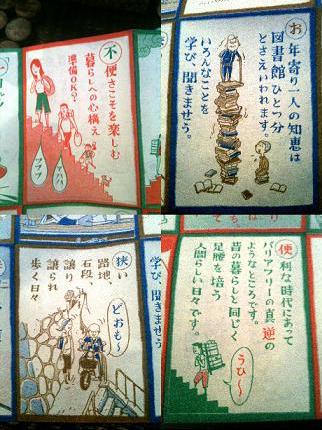 不便さこそを楽しむ
暮らしへの心構え
準備OK?
お年寄り一人の知恵は
図書館ひとつ分
とさえいわれます。
いろんなことを
学び、聞きませう。
学び、聞きませう
狭い
路地
石段、
譲り
譲られ
歩く日々
どおも〜
便利な時代にあって
バリアフリーの真逆の
ようなところです。
昔の暮らしと同じく
足腰を培う
人間らしい日々です。
うひ〜